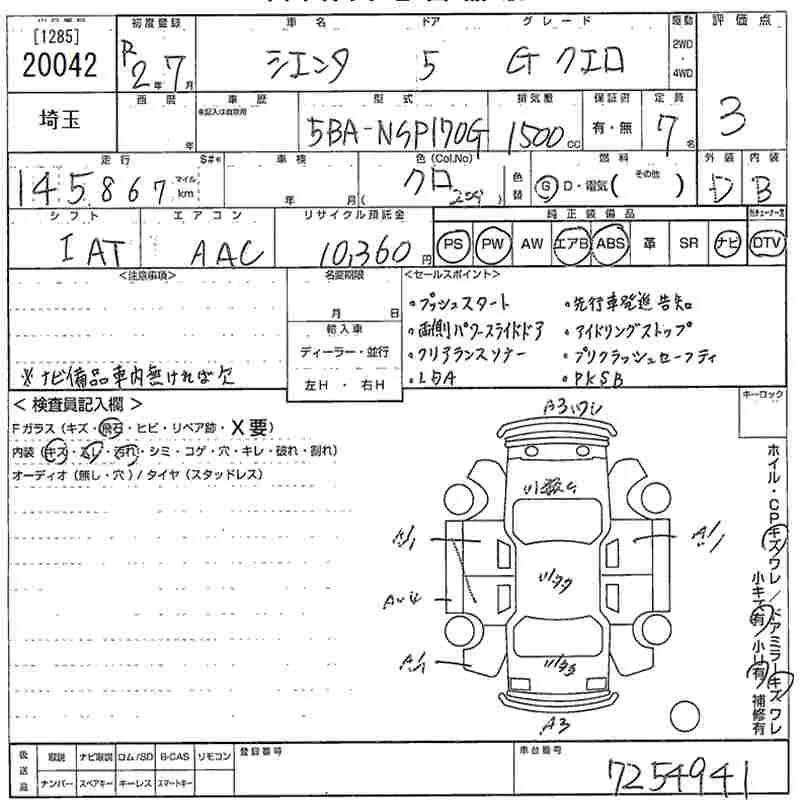 [1285]
20042
埼玉
初度登録
R 2年 7月
車名
シエンタ
ドア
5
グレード
G クエロ
駆動
2WD
・
4WD
評価点
3
西暦
年
車歴
未記入は自家用
型式
5BA-NSP170G
排気量
1500 CC
保証書
有・無
定員
7名
走行
145867
マイル
km
S#*
車検
年 月
色(Col.No)
クロ
( 209 )
色替
燃料
G D・電気( その他 )
外装
D
内装
B
シフト
IAT
エアコン
AAC
リサイクル預託金
10,360円
純正装備品
PS PW AW エアB ABS 革 SR ナビ DTV
<注意事項>
※ナビ備品車内無ければ欠
名変期限
月 日
輸入車
ディーラー・並行
左H ・ 右H
<セールスポイント>
・プッシュスタート
・両側パワースライドドア
・クリアランスソナー
・LDA
・先行車発進告知
・アイドリングストップ
・プリクラッシュセーフティ
・PKSB
キーロック
< 検査員記入欄 >
Fガラス(キズ・飛石・ヒビ・リペア跡・X要)
内装(キズ・スレ・汚れ・シミ・コゲ・穴・キレ・破れ・割れ)
オーディオ(無し・穴)/タイヤ(スタッドレス)
A3ワレ
A1
A1
A1
A3
ホイル・CPキズワレ/ドアミラーキズワレ
小キズ有/小凹有 補修有
後送品
取説 ナビ取説 ロム/SD B-CAS リモコン
ナンバー スペアキー キーレス スマートキー
登録番号
車台番号
7254941